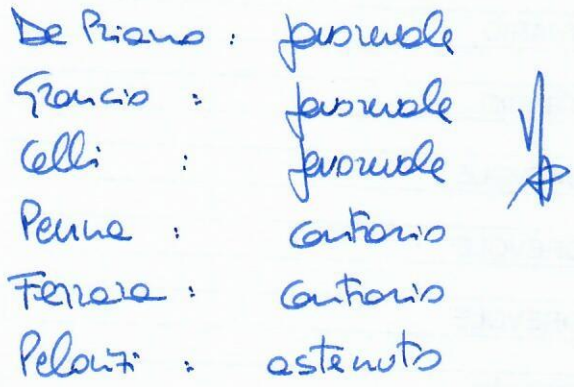 De Priamo : favorevole
Grancio : favorevole
Celli : favorevole
Penna : contrario
Ferrara : contrario
Pelonzi : astenuto